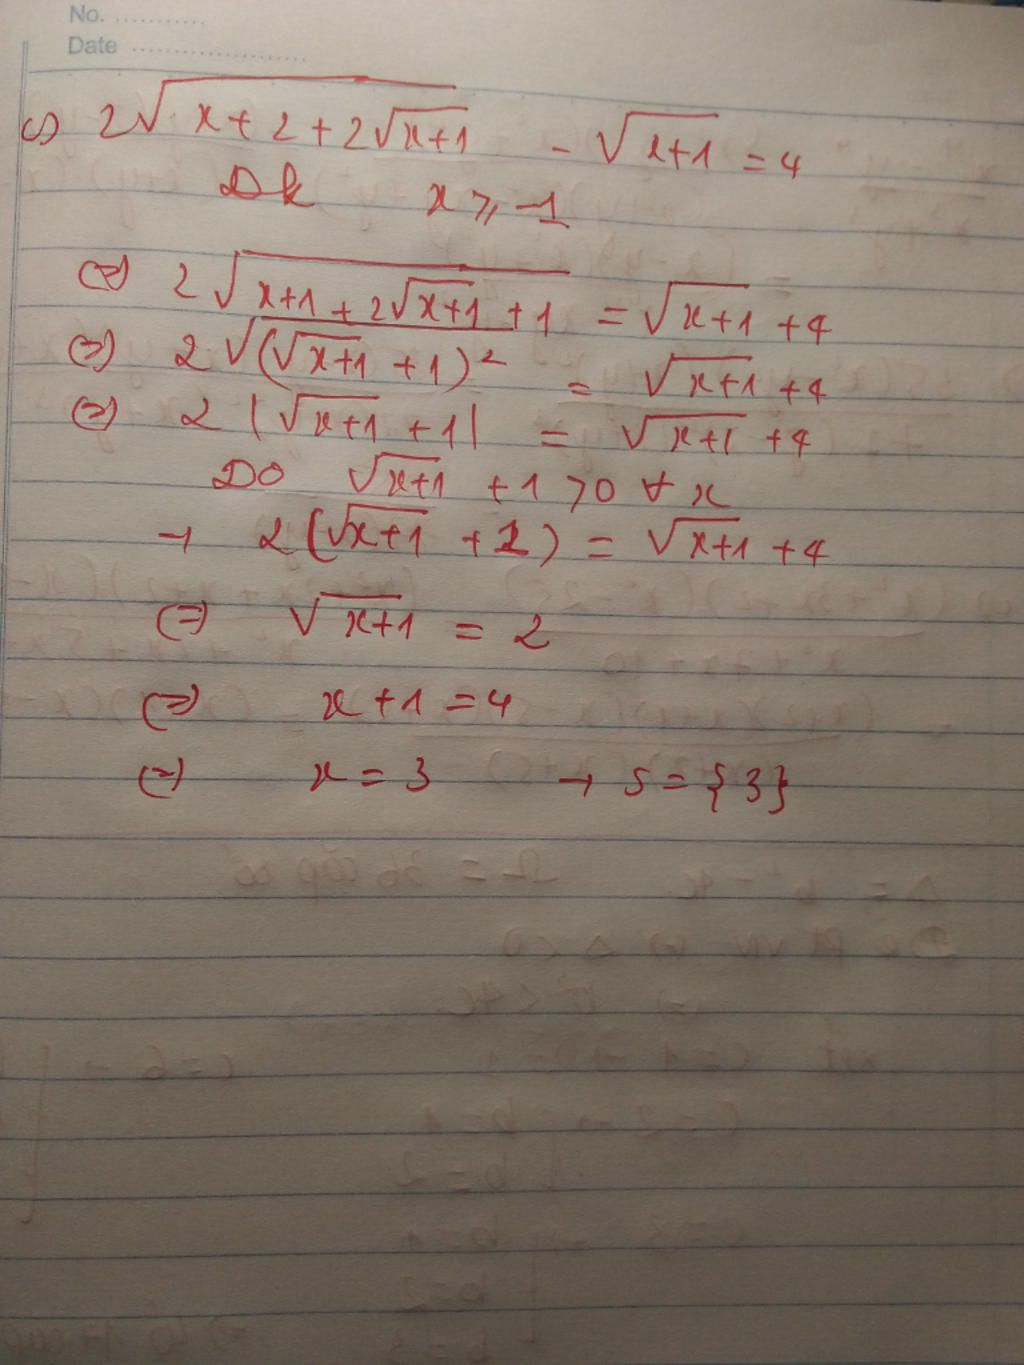 No. ...........
Date .....................
c) 2√(x+2+2√(x+1)) - √(x+1) = 4
Đk x ≥ -1
(=) 2√(x+1+2√(x+1)+1) = √(x+1) + 4
(=) 2√((√(x+1)+1)²) = √(x+1) + 4
(=) 2|√(x+1)+1| = √(x+1) + 4
Do √(x+1) + 1 > 0 ∀ x
→ 2(√(x+1)+1) = √(x+1) + 4
(=) √(x+1) = 2
(=) x+1 = 4
(=) x = 3 → S = {3}